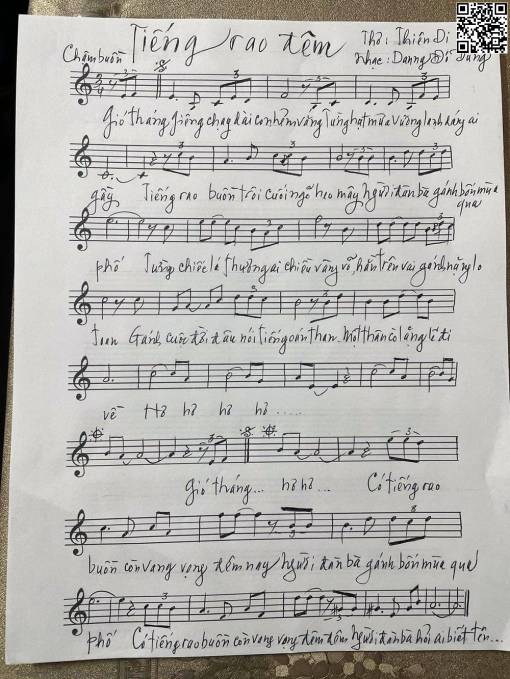 Tiếng rao đêm
Thơ: Thiên Di
Chậm buồn
Nhạc: Dương Đỗ Dũng
Gió tháng giêng chạy dài con hẻm vắng Từng hạt mưa vương lạnh dáng ai
gầy Tiếng rao buồn trôi cuối ngõ heo mây người đàn bà gánh bốn mùa qua
phố Từng chiếc lá thương ai chiều vàng võ, hằn trên vai gánh nặng lo
toan Gánh cuộc đời đâu nói tiếng oán than. Một thân cò lặng lẽ đi
về Hơ hơ hơ hơ .....
Gió tháng... hơ hơ... Có tiếng rao
buồn còn vang vọng đêm nay Người đàn bà gánh bốn mùa qua
phố Có tiếng rao buồn còn vang vọng đêm đêm Người đàn bà hỏi ai biết tên...